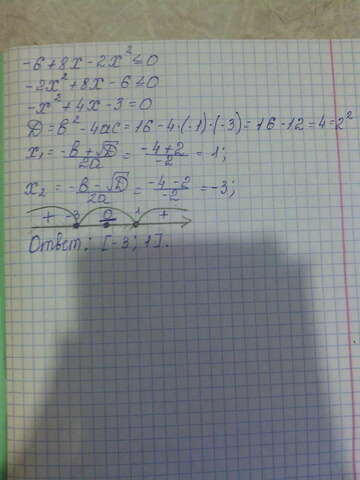 -6+8x-2x²≤0
-2x²+8x-6≤0
-x²+4x-3=0
D=b²-4ac=16-4·(-1)·(-3)=16-12=4=2²
x₁=(-b+√D)/2a=(-4+2)/-2=1;
x₂=(-b-√D)/2a=(-4-2)/-2=-3;
+ -3 0 1 +
Ответ: [-3; 1].